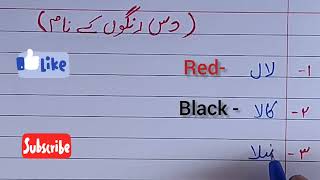 (دس رنگوں کے نام)
Like
۱- لال Red-
۲- کالا Black -
Subscribe
۳- نیلا